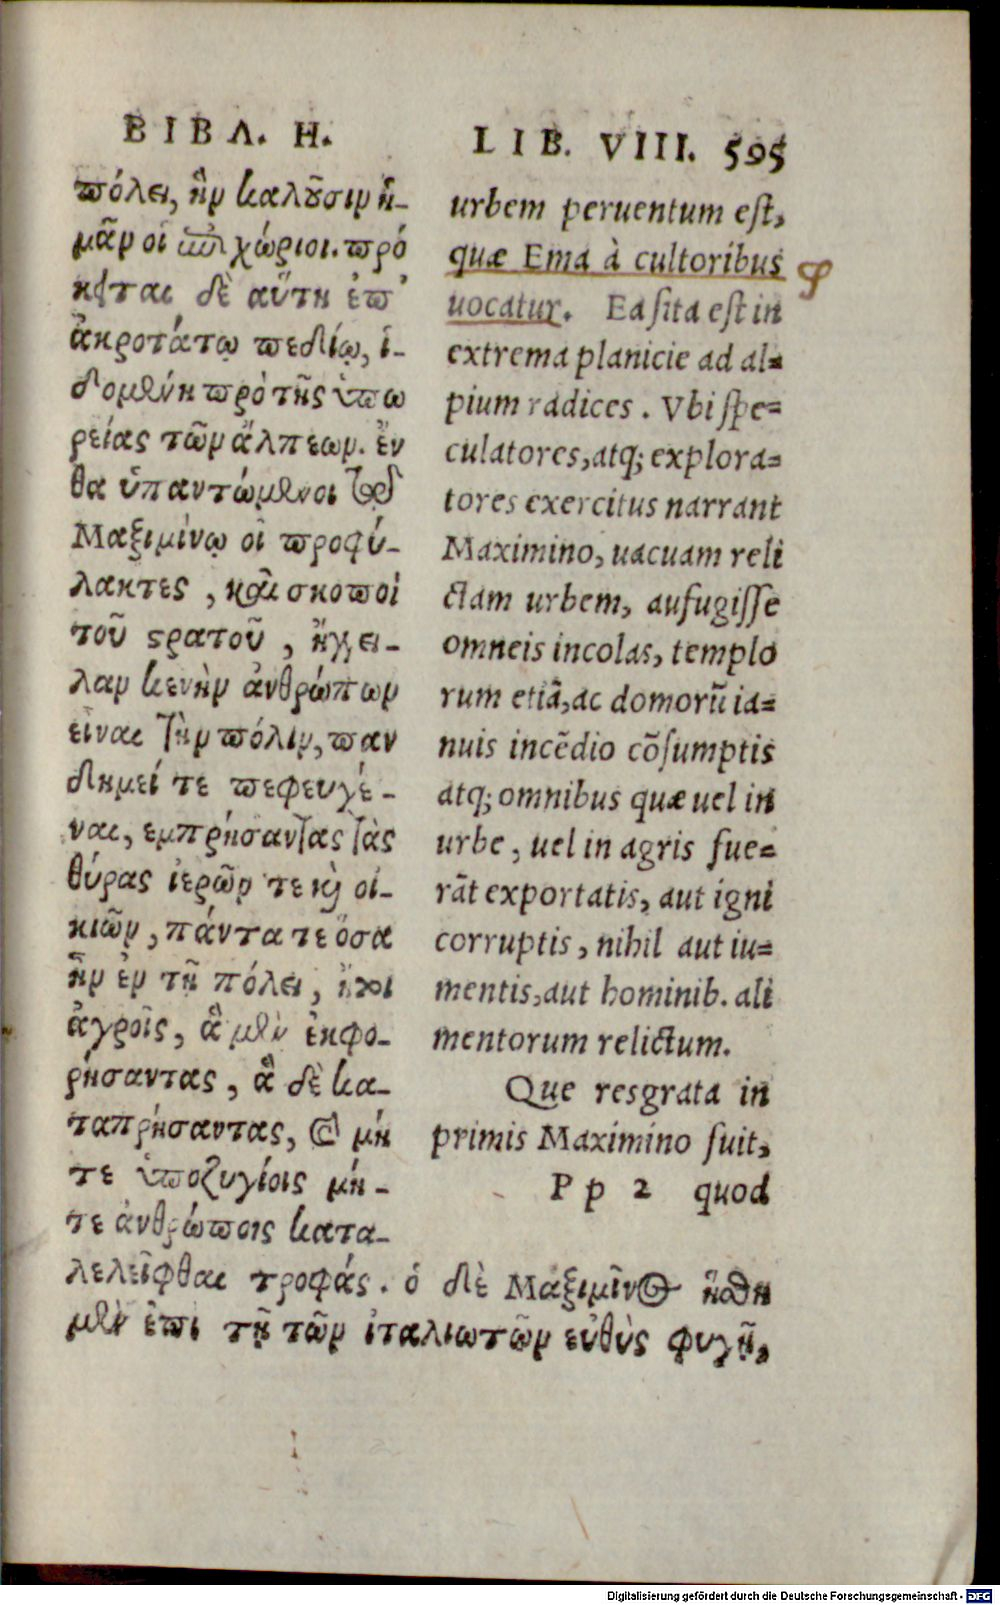 ΒΙΒΛ. Η.
πόλει, ἣν καλοῦσιν ἥ-
μαν οἱ ἐπιχώριοι. πρό
κειται δὲ αὕτη ἐπ'
ἀκροτάτῳ πεδίῳ, ἱ-
δρυμένη πρὸ τῆς ὑπω
ρείας τῶν ἄλπεων. ἔν
θα ὑπαντώμενοι τῷ
Μαξιμίνῳ οἱ προφύ-
λακτες, καὶ σκοποὶ
τοῦ στρατοῦ, ἤγγει-
λαν κενὴν ἀνθρώπων
εἶναι τὴν πόλιν, παν
δημεί τε πεφευγέ-
ναι, εμπρήσαντας τὰς
θύρας ἱερῶν τε καὶ οἰ-
κιῶν, πάντα τε ὅσα
ἦν ἐν τῇ πόλει, ἢ τοῖ
ἀγροῖς, ἃ μὲν ἐκφο-
ρήσαντας, ἃ δὲ κα-
ταπρήσαντας, καὶ μή
τε ὑποζυγίοις μή-
τε ἀνθρώποις κατα-
λελεῖφθαι τροφάς. ὁ δὲ Μαξιμῖνος ἥσθη
μὲν ἐπι τῇ τῶν ἰταλιωτῶν εὐθὺς φυγῇ,
LIB. VIII. 595
urbem peruentum est,
quæ Ema à cultoribus
uocatur. Ea sita est in
extrema planicie ad al=
pium radices. Vbi spe=
culatores, atq; explora=
tores exercitus narrant
Maximino, uacuam reli
ctam urbem, aufugisse
omneis incolas, templo
rum etiã, ac domorũ ia=
nuis incẽdio cõsumptis
atq; omnibus quæ uel in
urbe, uel in agris fue=
rãt exportatis, aut igni
corruptis, nihil aut iu=
mentis, aut hominib. ali
mentorum relictum.
Que res grata in
primis Maximino fuit,
Pp 2 quod
Digitalisierung gefördert durch die Deutsche Forschungsgemeinschaft - DFG